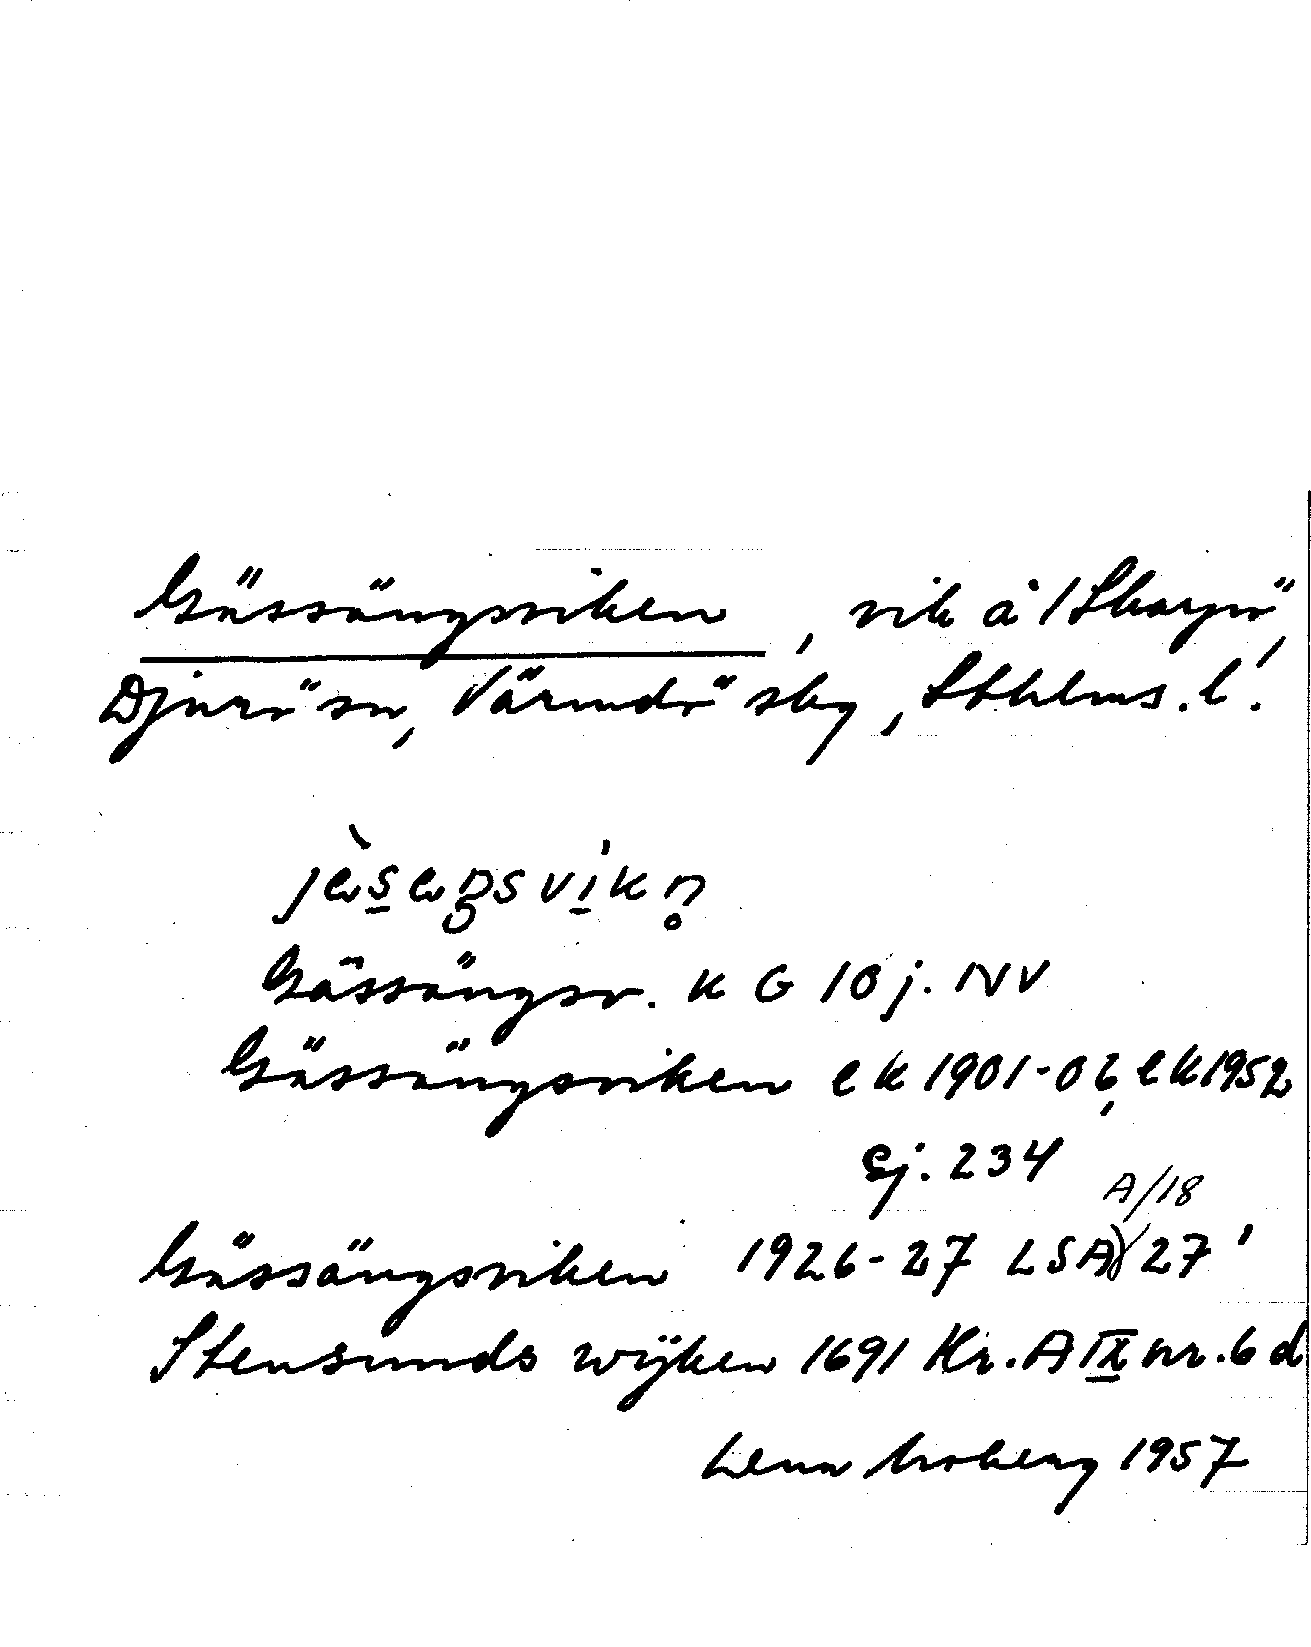 Gässängsviken, vik å /Skarpö,
Djurö sn, Värmdö skg, Sthlms. l.
Gässängsv. K G 10 j. NV
Gässängsviken ek 1901-06, ek 1952
Ej. 234
A/18
Gässängsviken 1926-27 LSA 27'
Stensunds wijken 1691 Kr. A IX nr. 6 d
Lena Moberg 1957